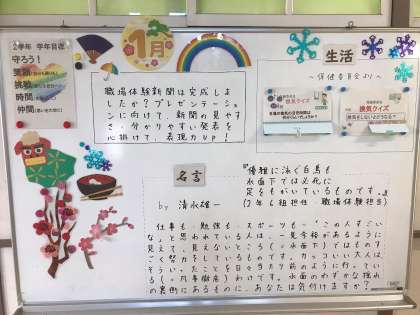 2学年 学年目標
守ろう!
笑顔
挑戦
時間
仲間
1月
職場体験新聞は完成しま
したか?プレゼンテーショ
ンに向けて、新聞の見やす
さ、分かりやすい発表を
心掛けて、表現力UP!
生活
～保健委員会より～
換気クイズ
換気クイズ
換気をしないとどうなる?
名言
by 清水雄一
『優雅に泳ぐ白鳥も
水面下では必死に
足をもがいているものです。』
(2年6組担任 職場体験担当)
仕事も、勉強も、スポーツも…“この人すごい
な”と思われている人は、一見余裕があるように
見えて、見えないところ(水面下)ではものす
ごく努力をしているものです。カッコいい人は
そういったことを日々当たり前のように行ってい
る。(凡事徹底)わけです。水面のわずかな揺れ
の裏側にあるものに、あなたは気付けますか?